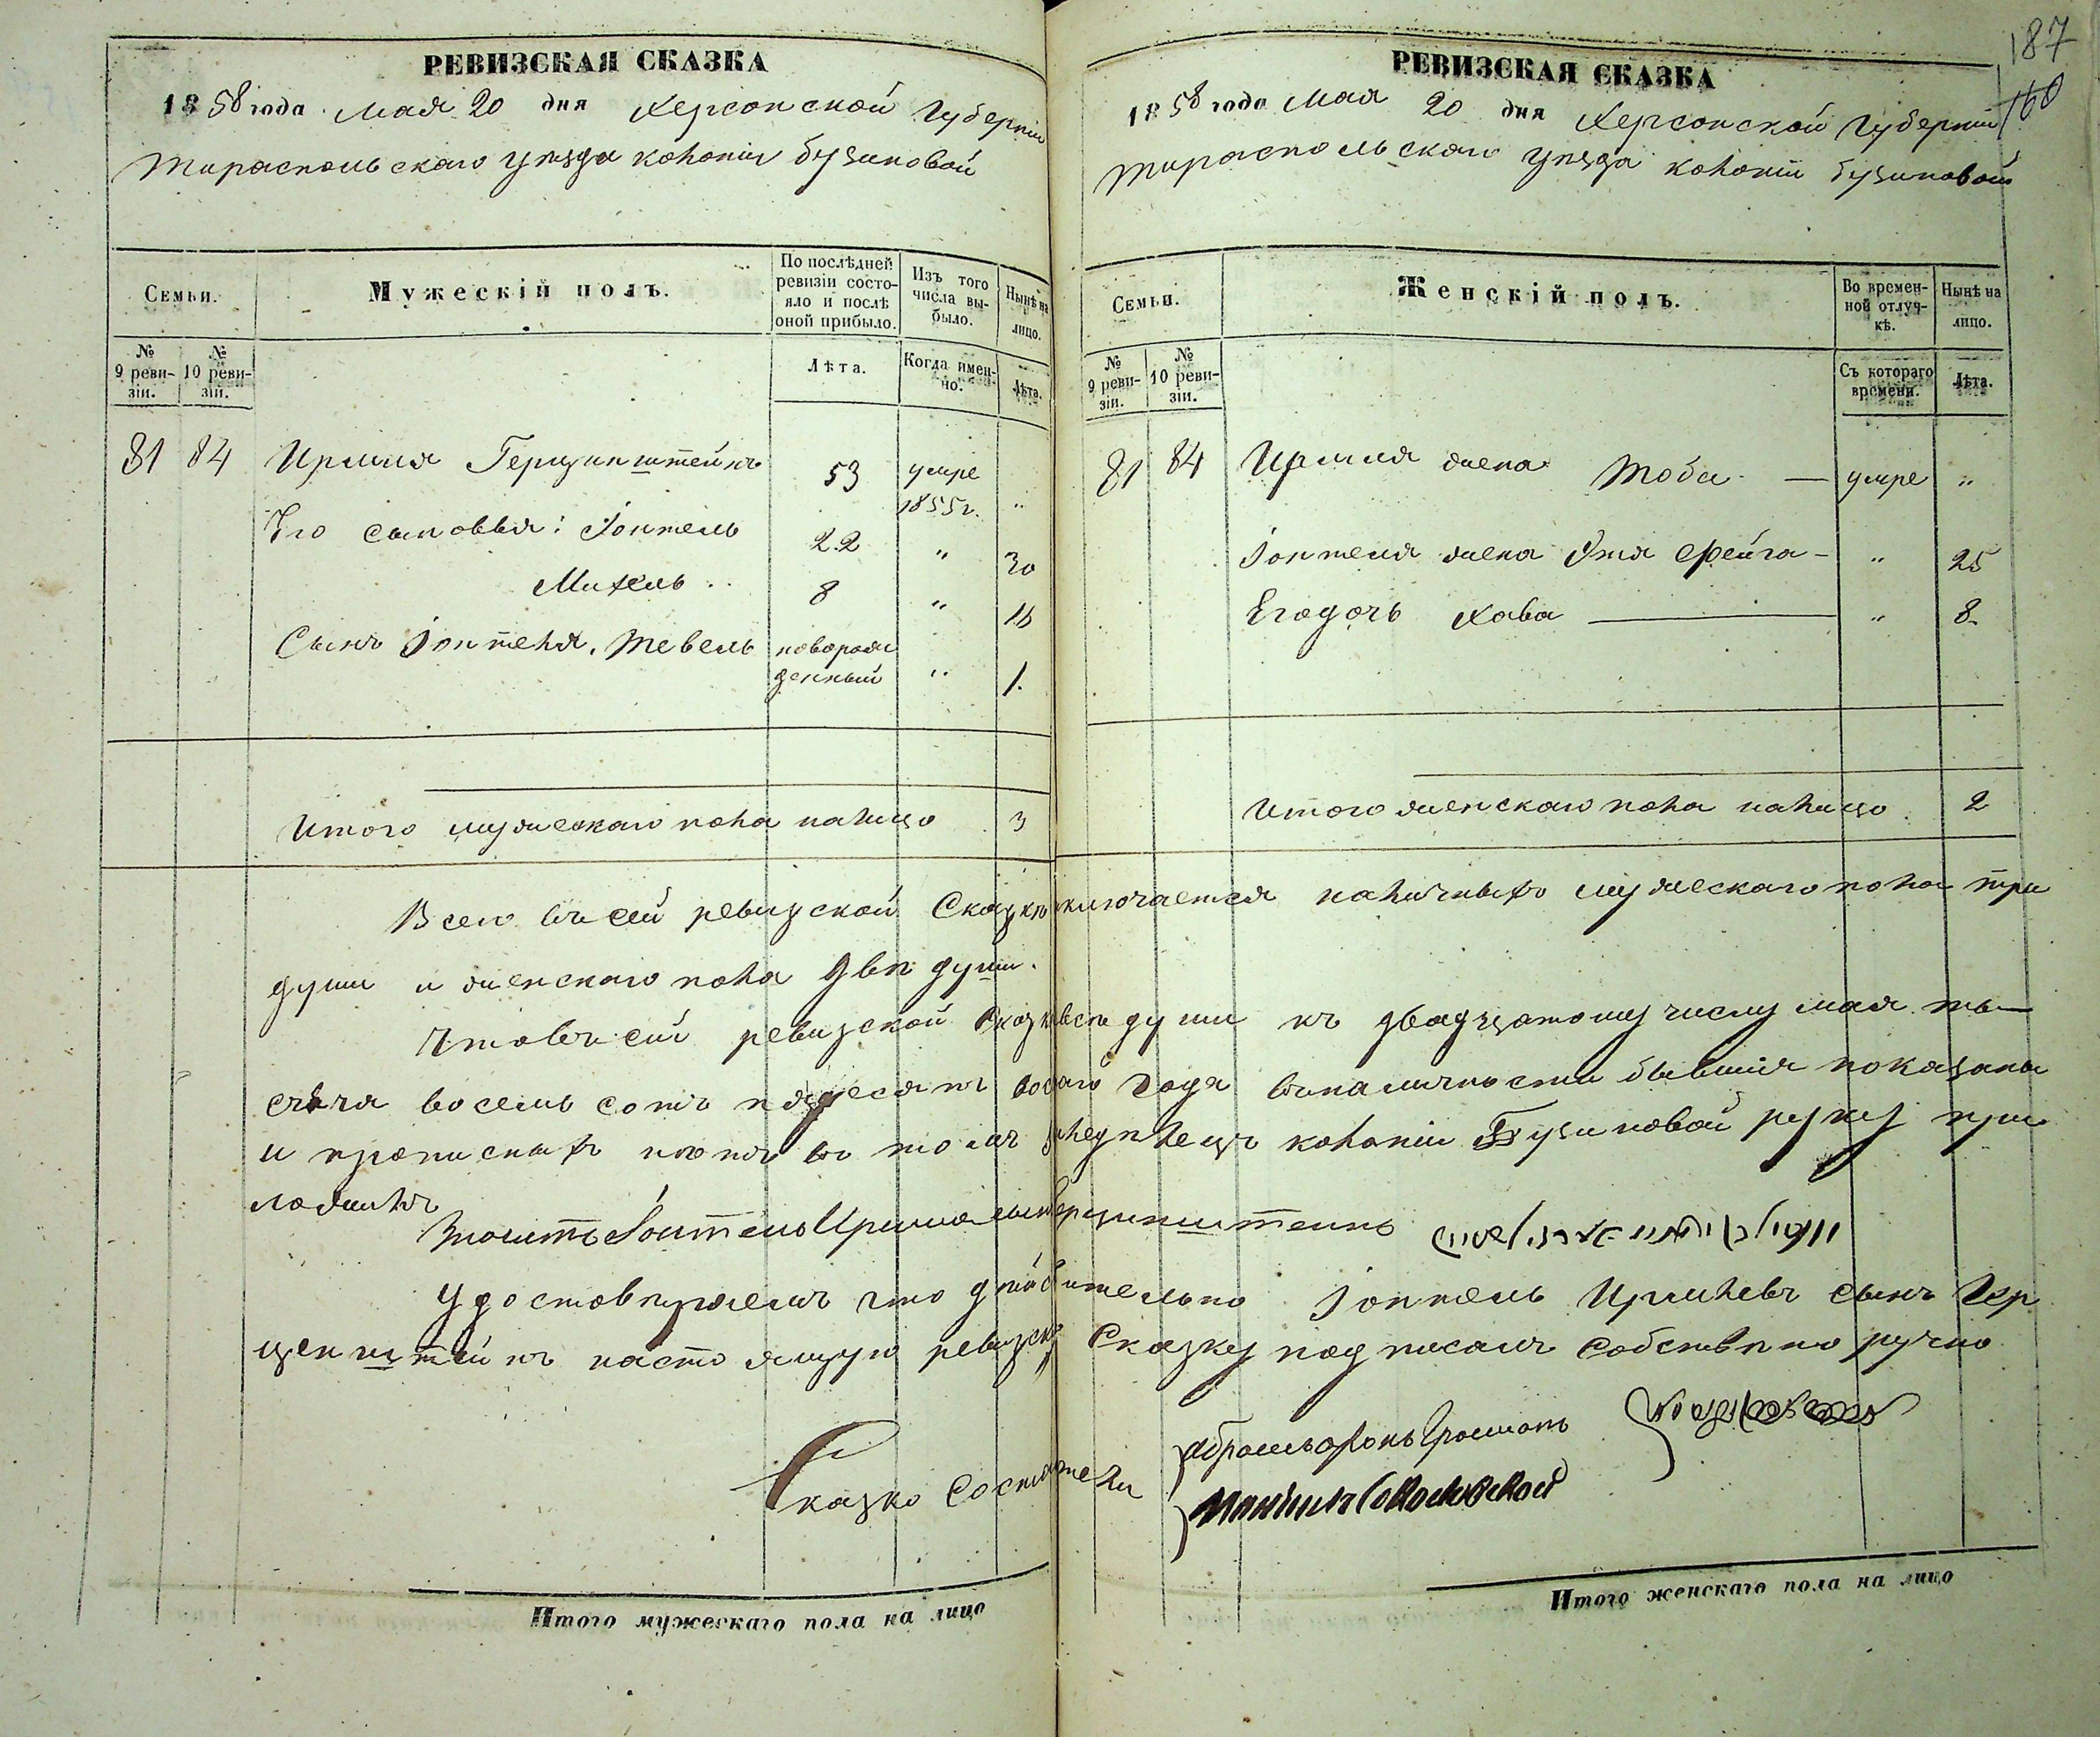 РЕВИЗСКАЯ СКАЗКА
1858 года мая 20 дня Херсонской Губерніи
Тираспольскаго уѣзда колоніи бузиновой
Семьи.
Мужескій полъ.
По послѣдней ревизіи состояло и послѣ оной прибыло.
Изъ того числа выбыло.
Нынѣ на лицо.
№ 9 ревизіи.
№ 10 ревизіи.
Лѣта.
Когда именно.
Лѣта.
81 84 Ирмия Герцинштейнъ 53 умре 1855 г. "
Его сыновья: Іонтель 22 " 30
Михель 8 " 16
Сынъ Іонтеля, Тевель новорожденный " 1.
Итого мужескаго пола налицо 3
187
160
РЕВИЗСКАЯ СКАЗКА
1858 года мая 20 дня Херсонской Губерніи
Тираспольскаго уѣзда колоніи бузиновой
Семьи.
Женскій полъ.
Во временной отлучкѣ.
Нынѣ на лицо.
№ 9 ревизіи.
№ 10 ревизіи.
Съ котораго времени.
Лѣта.
81 84 Ирмия жена Тоба — умре "
Іонтеля жена Этя Фейга — " 25
Его дочь Хава — " 8.
Итого женскаго пола налицо 2
Всего въ сей ревизской Сказкѣ заключается наличныхъ мужескаго пола три
души и женскаго пола двѣ души.
Что въ сей ревизской Сказкѣ всѣ души къ двадцатому числу мая ты-
сяча восемь сотъ пядесятъ восмаго года въ наличности бывшія показаны
и прописныхъ нѣтъ въ томъ земледѣлецъ колоніи Бузиновой руку при
ложилъ
Іонтель Ирмия Герцинштейнъ
Удостовѣряемъ что дѣйствительно Іонтель Ирмилевъ сынъ Гер
ценштейнъ настоящую ревизскую Сказку подписалъ Собственно ручно
Сказко Состотели
Мошко Соколовской
Итого мужескаго пола на лицо
Итого женскаго пола на лицо